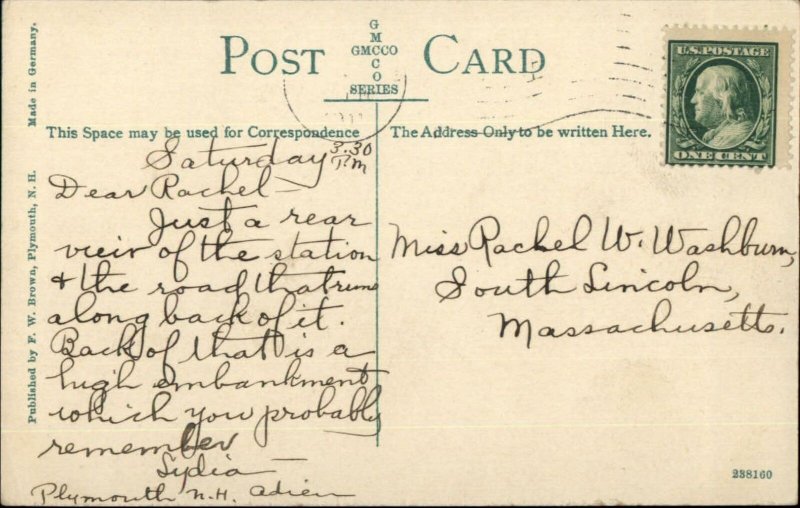 Made in Germany.
Published by F. W. Brown, Plymouth, N. H.
POST CARD
G
M
GMCCO
C
O
SERIES
U.S. POSTAGE
ONE CENT
This Space may be used for Correspondence
The Address Only to be written Here.
Saturday 3.30 P.M
Dear Rachel -
Just a rear
view of the station
& the road that runs
along back of it.
Back of that is a
high embankment
which you probably
remember
Lydia
Plymouth N.H. Adieu
Miss Rachel W. Washburn,
South Lincoln,
Massachusetts.
238160